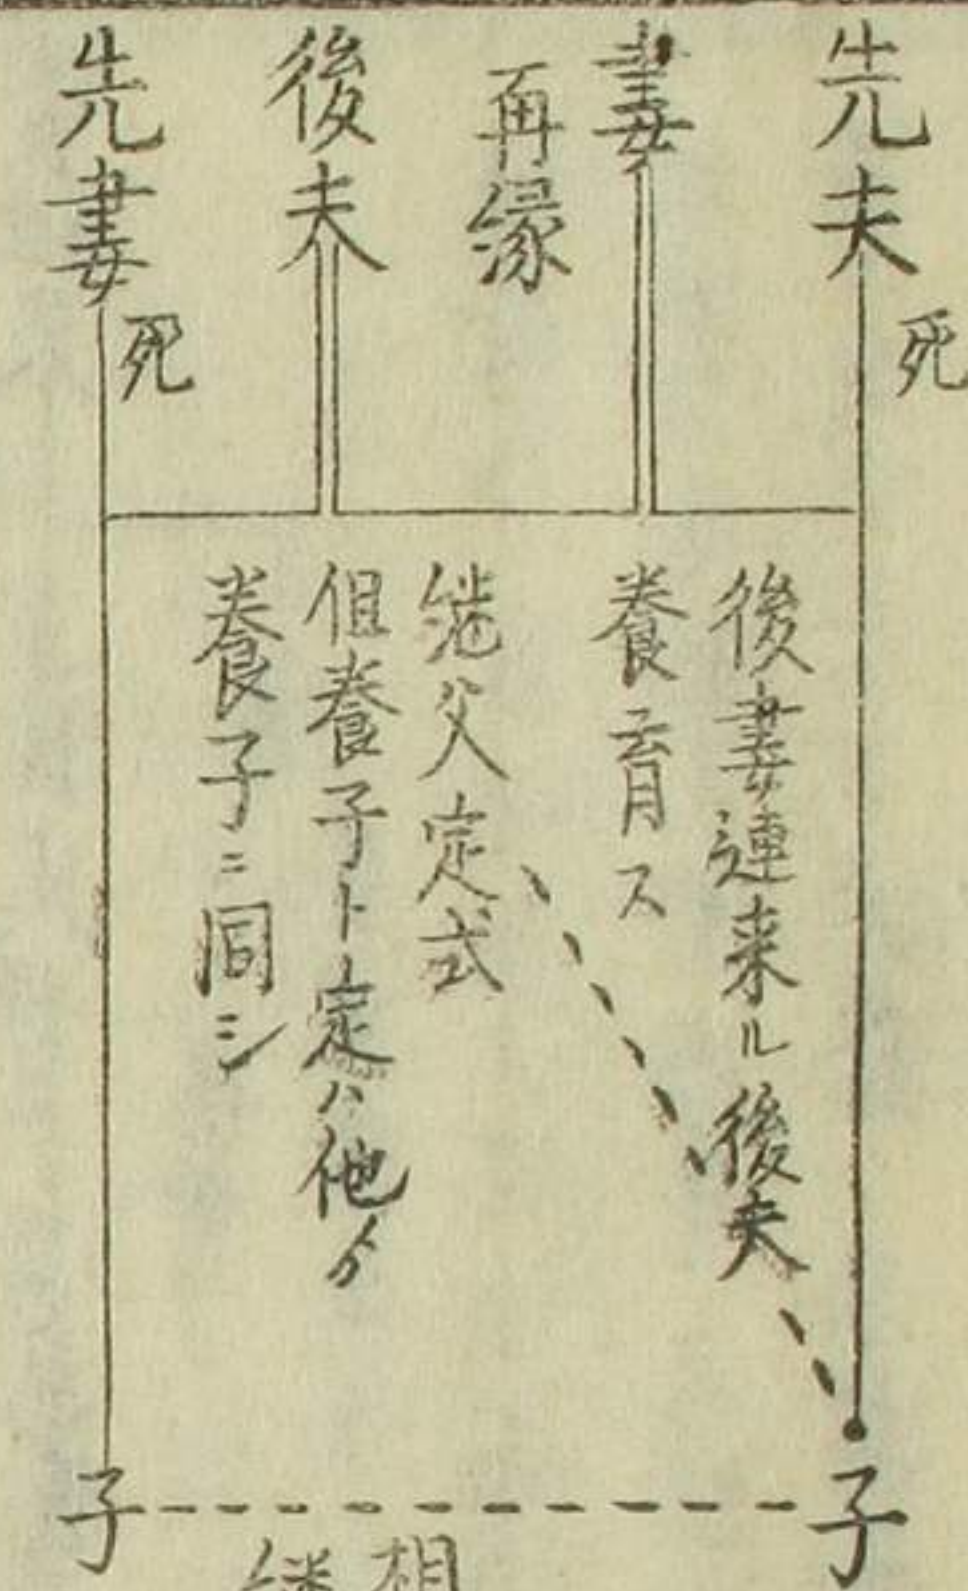 先夫
死
妻
再縁
後夫
先妻
死
後妻連来ル後夫
養育ス
継父定式
但養子ト定ハ他ノ
養子ニ同シ
子
子
相
継